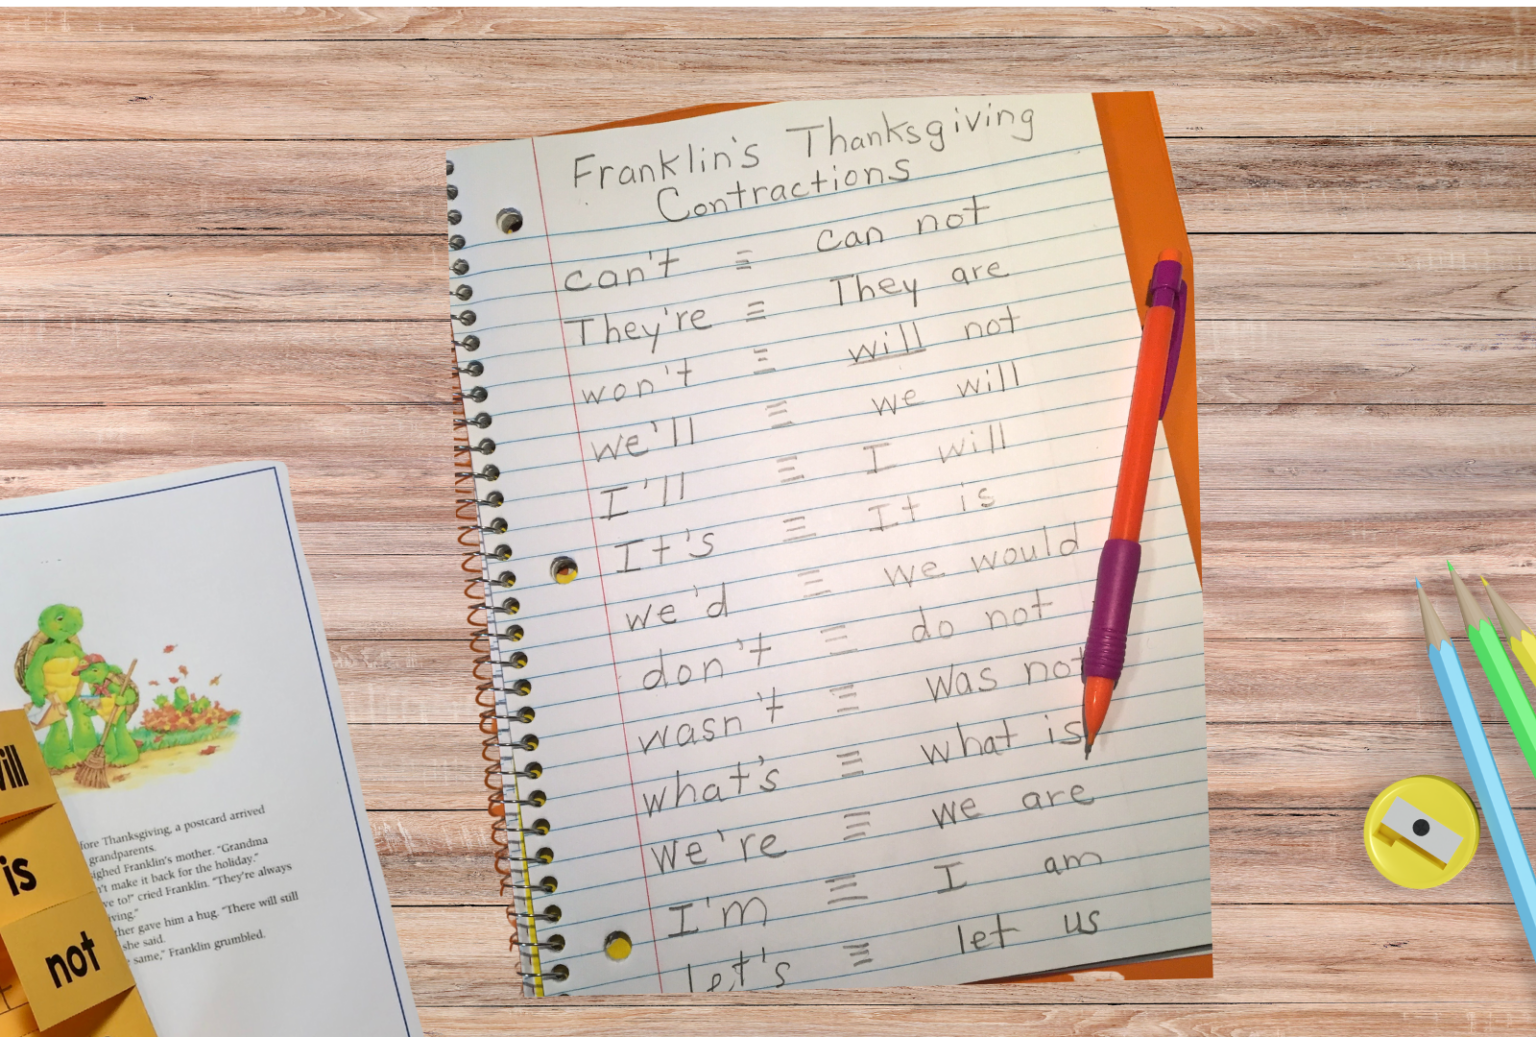 Franklin's Thanksgiving
Contractions
can't = can not
They're = They are
won't = will not
we'll = we will
I'll = I will
It's = It is
we'd = we would
don't = do not
wasn't = was not
what's = what is
we're = we are
I'm = I am
let's = let us
Thanksgiving, a postcard arrived
grandparents.
Franklin's mother. "Grandma
make it back for the holiday."
to!" cried Franklin. "They're always
gave him a hug. "There will still
she said.
same," Franklin grumbled.
is
not